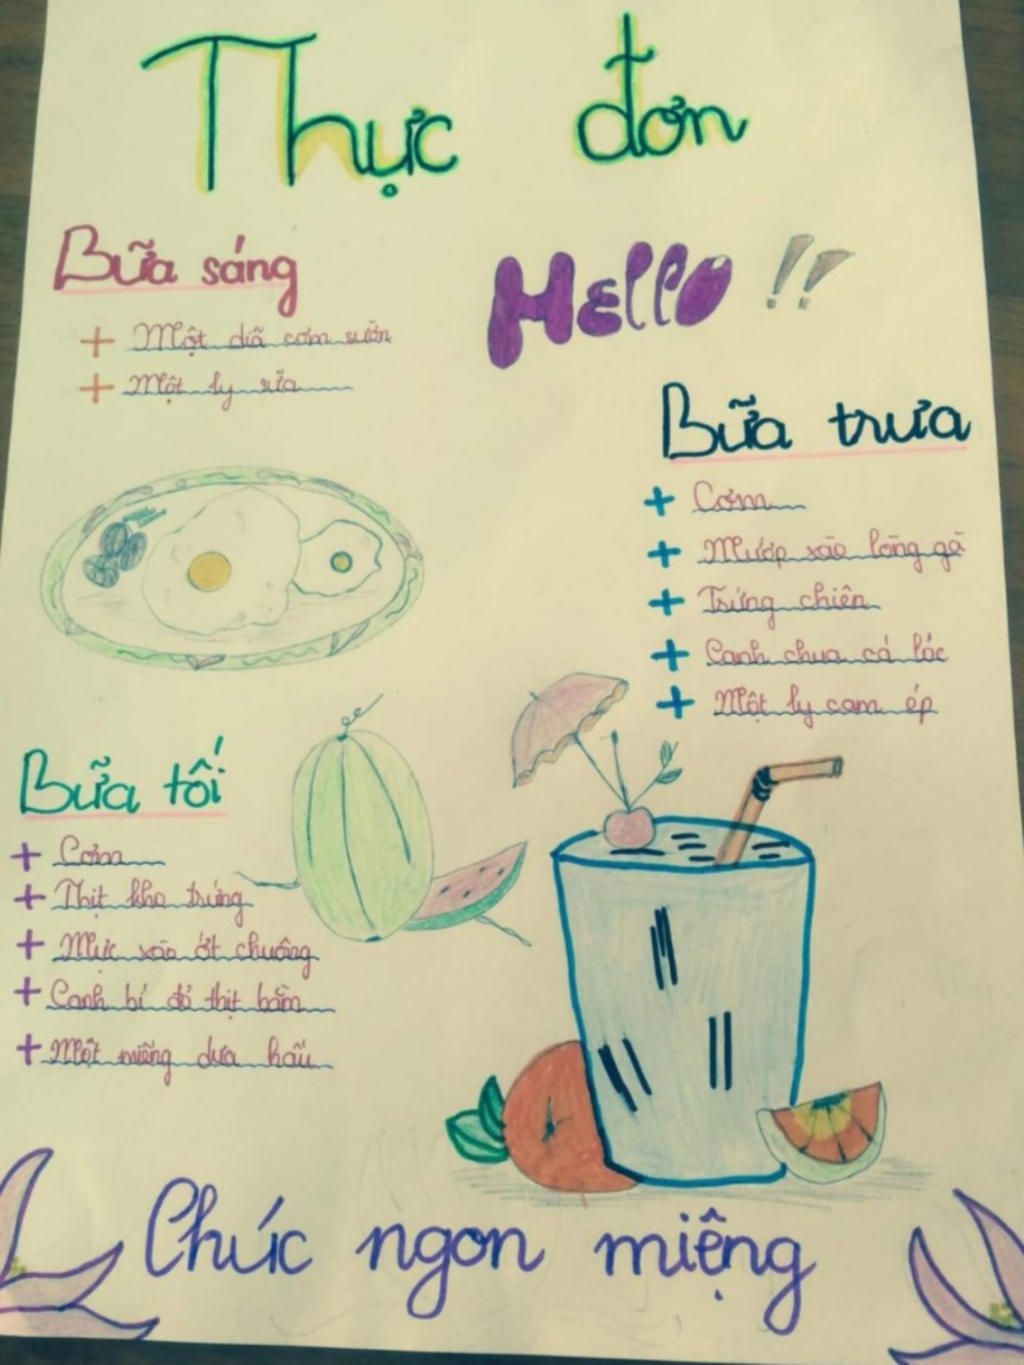 Thực đơn
Bữa sáng
+ Một dĩa cơm sườn
+ Một ly sữa
Hello !!
Bữa trưa
+ Cơm
+ Mướp xào lòng gà
+ Trứng chiên
+ Canh chua cá lóc
+ Một ly cam ép
Bữa tối
+ Cơm
+ Thịt kho trứng
+ Mực xào ớt chuông
+ Canh bí đỏ thịt bằm
+ Một miếng dưa hấu
Chúc ngon miệng